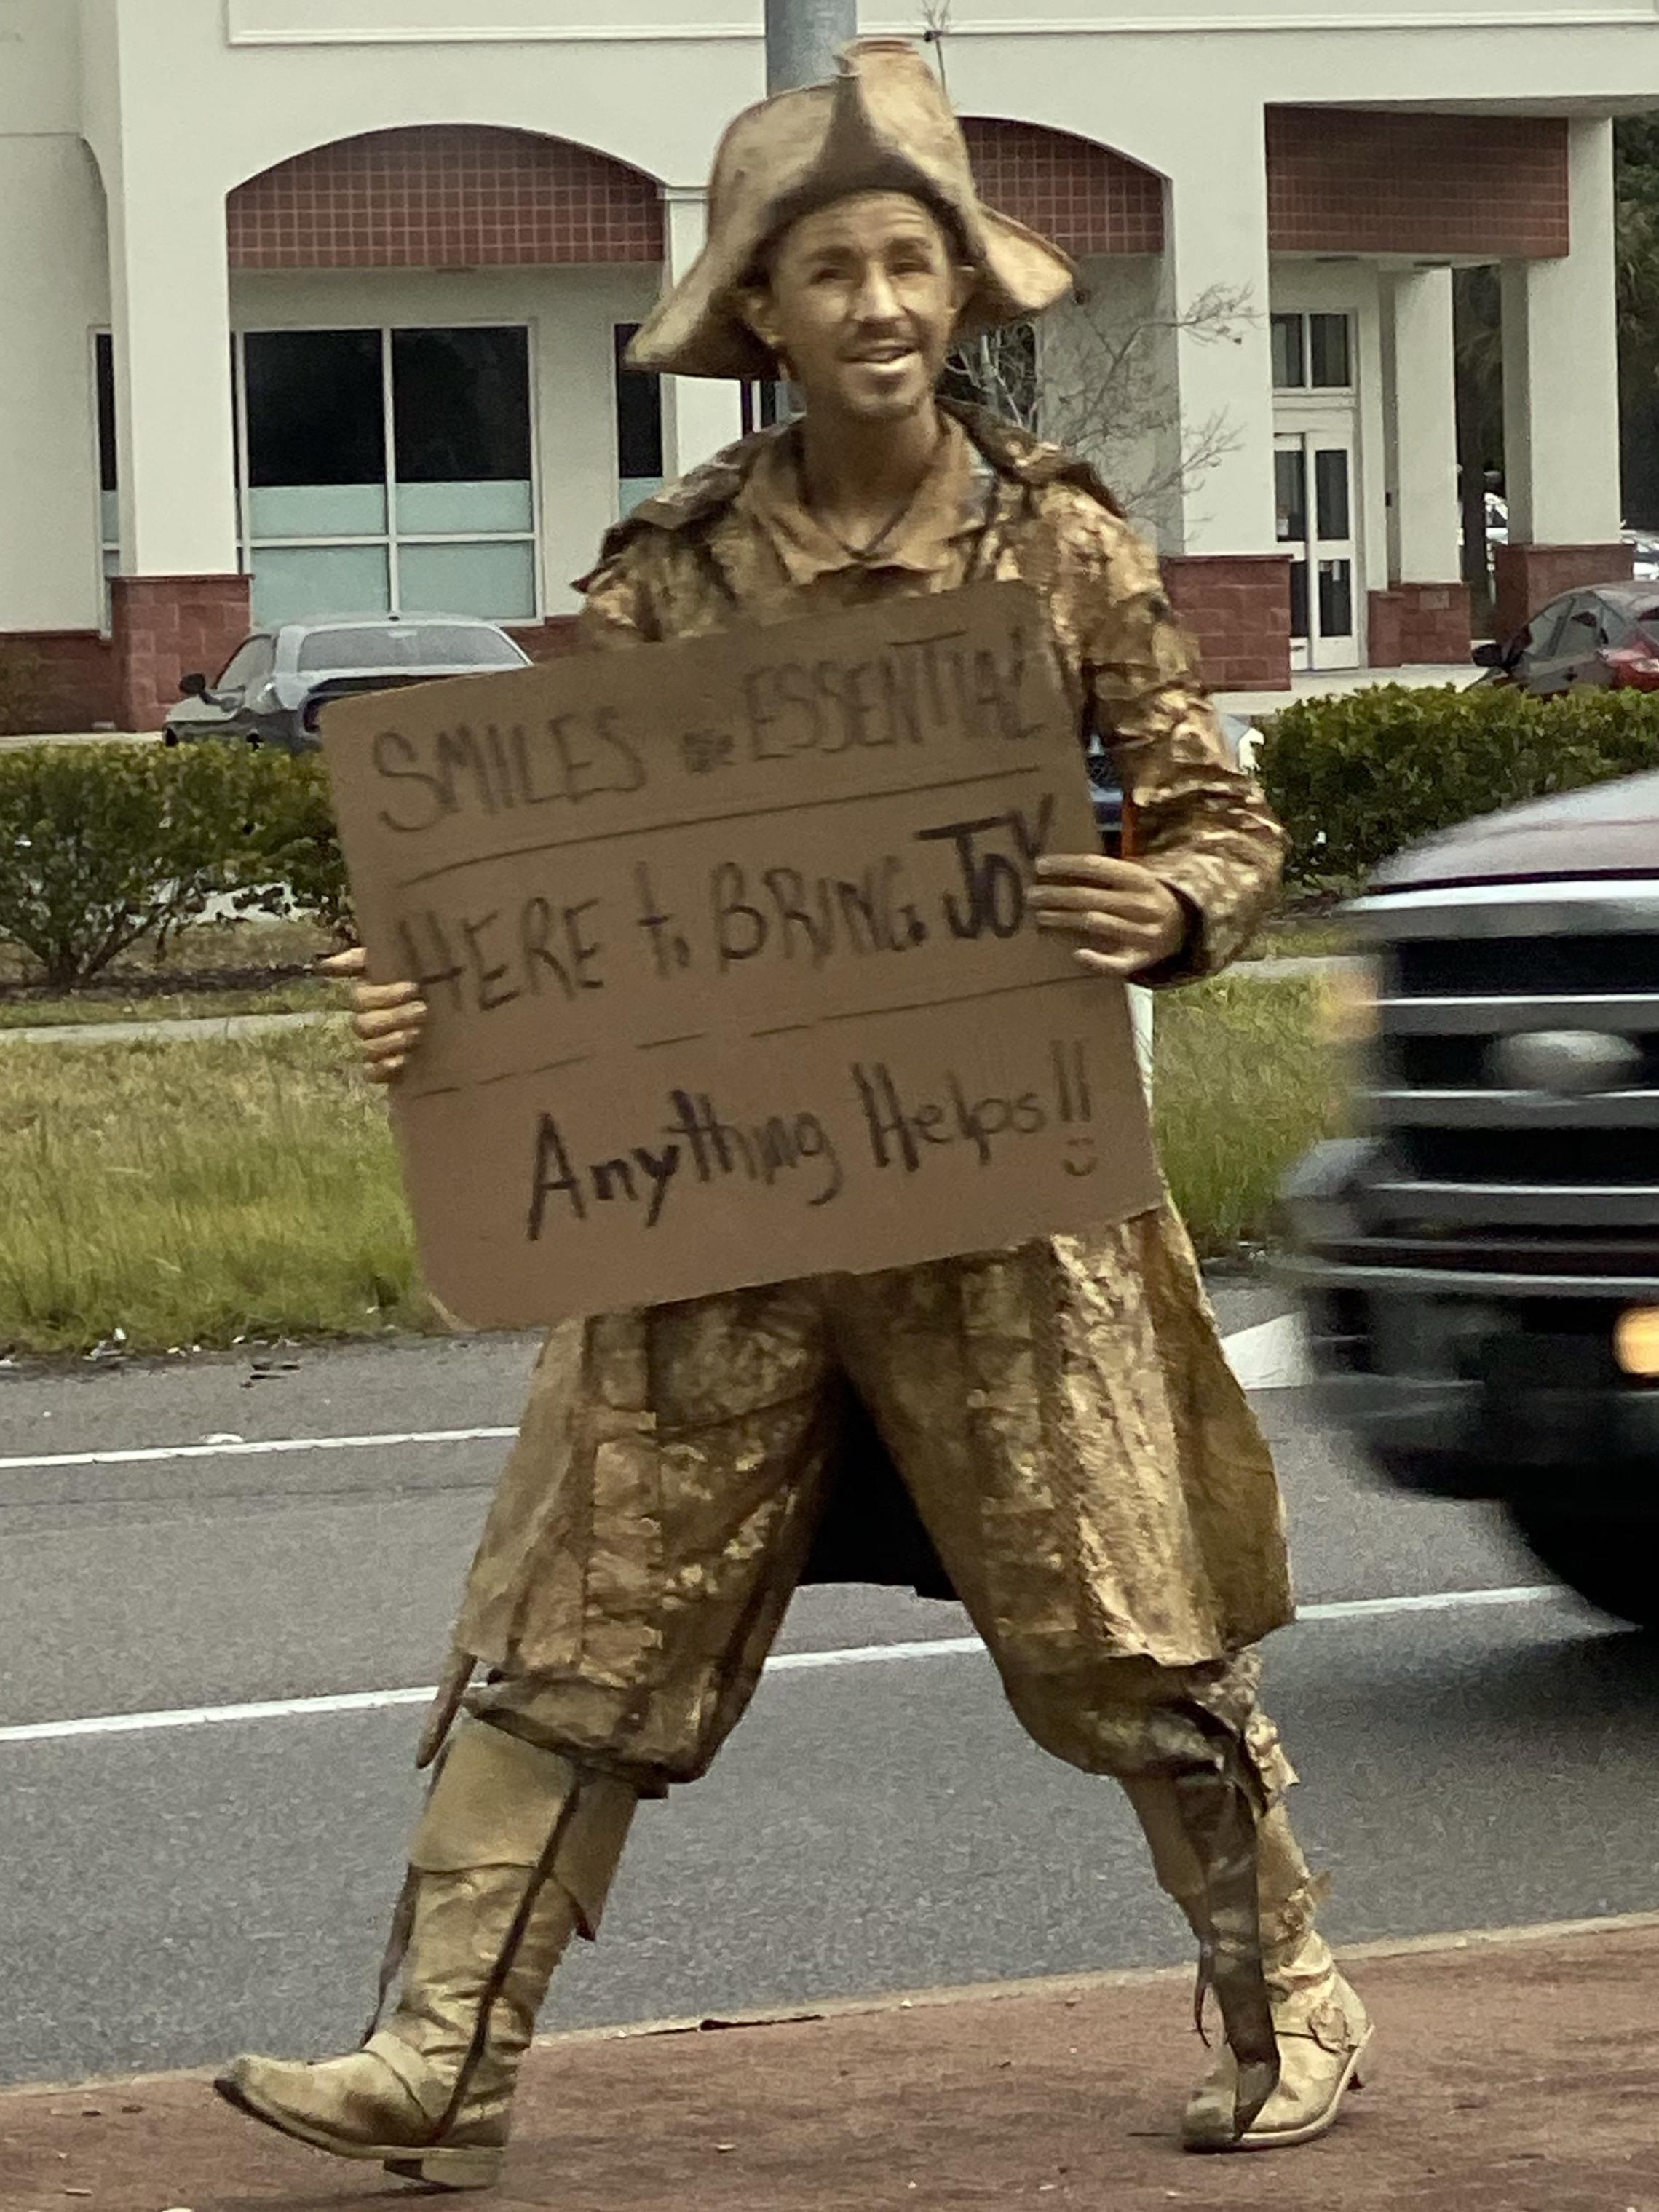 SMILES are ESSENTIAL
HERE to BRING JOY
Anything Helps!!